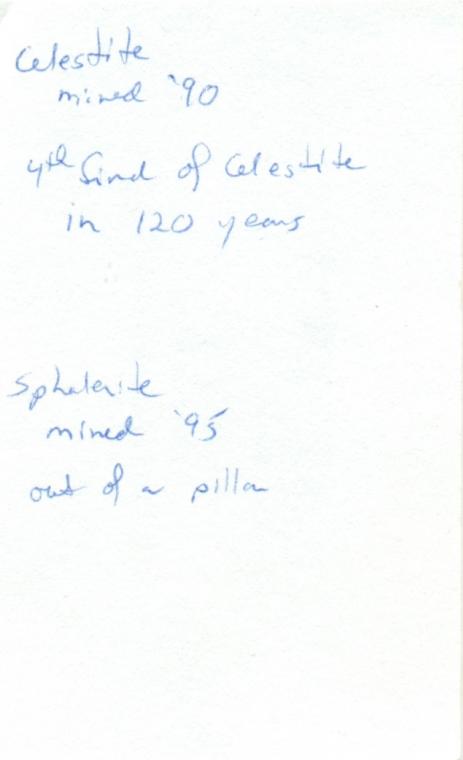 Celestite
mined '90
4th find of Celestite
in 120 years
Sphalerite
mined '95
out of a pillar